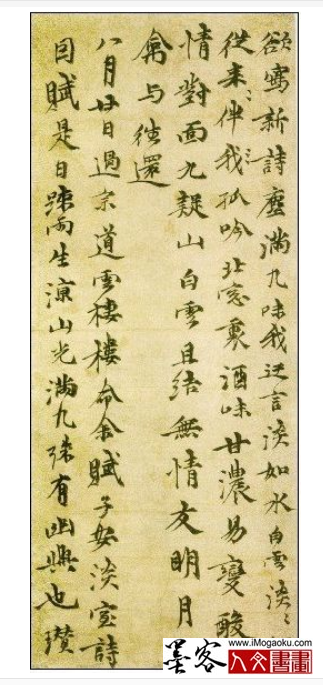 欲寫新詩塵滿几味我迂言淡如水白雲淡〻
從來〻伴我孤吟北窓裏酒味甘濃易變酸
情對面九疑山白雲且結無情友明月
禽与往還
八月廿日過宗道雲棲樓命余賦子安淡室詩
因賦是日踈雨生涼山光滿几殊有幽興也瓚
www.iMogaoku.com
墨客人文書畫